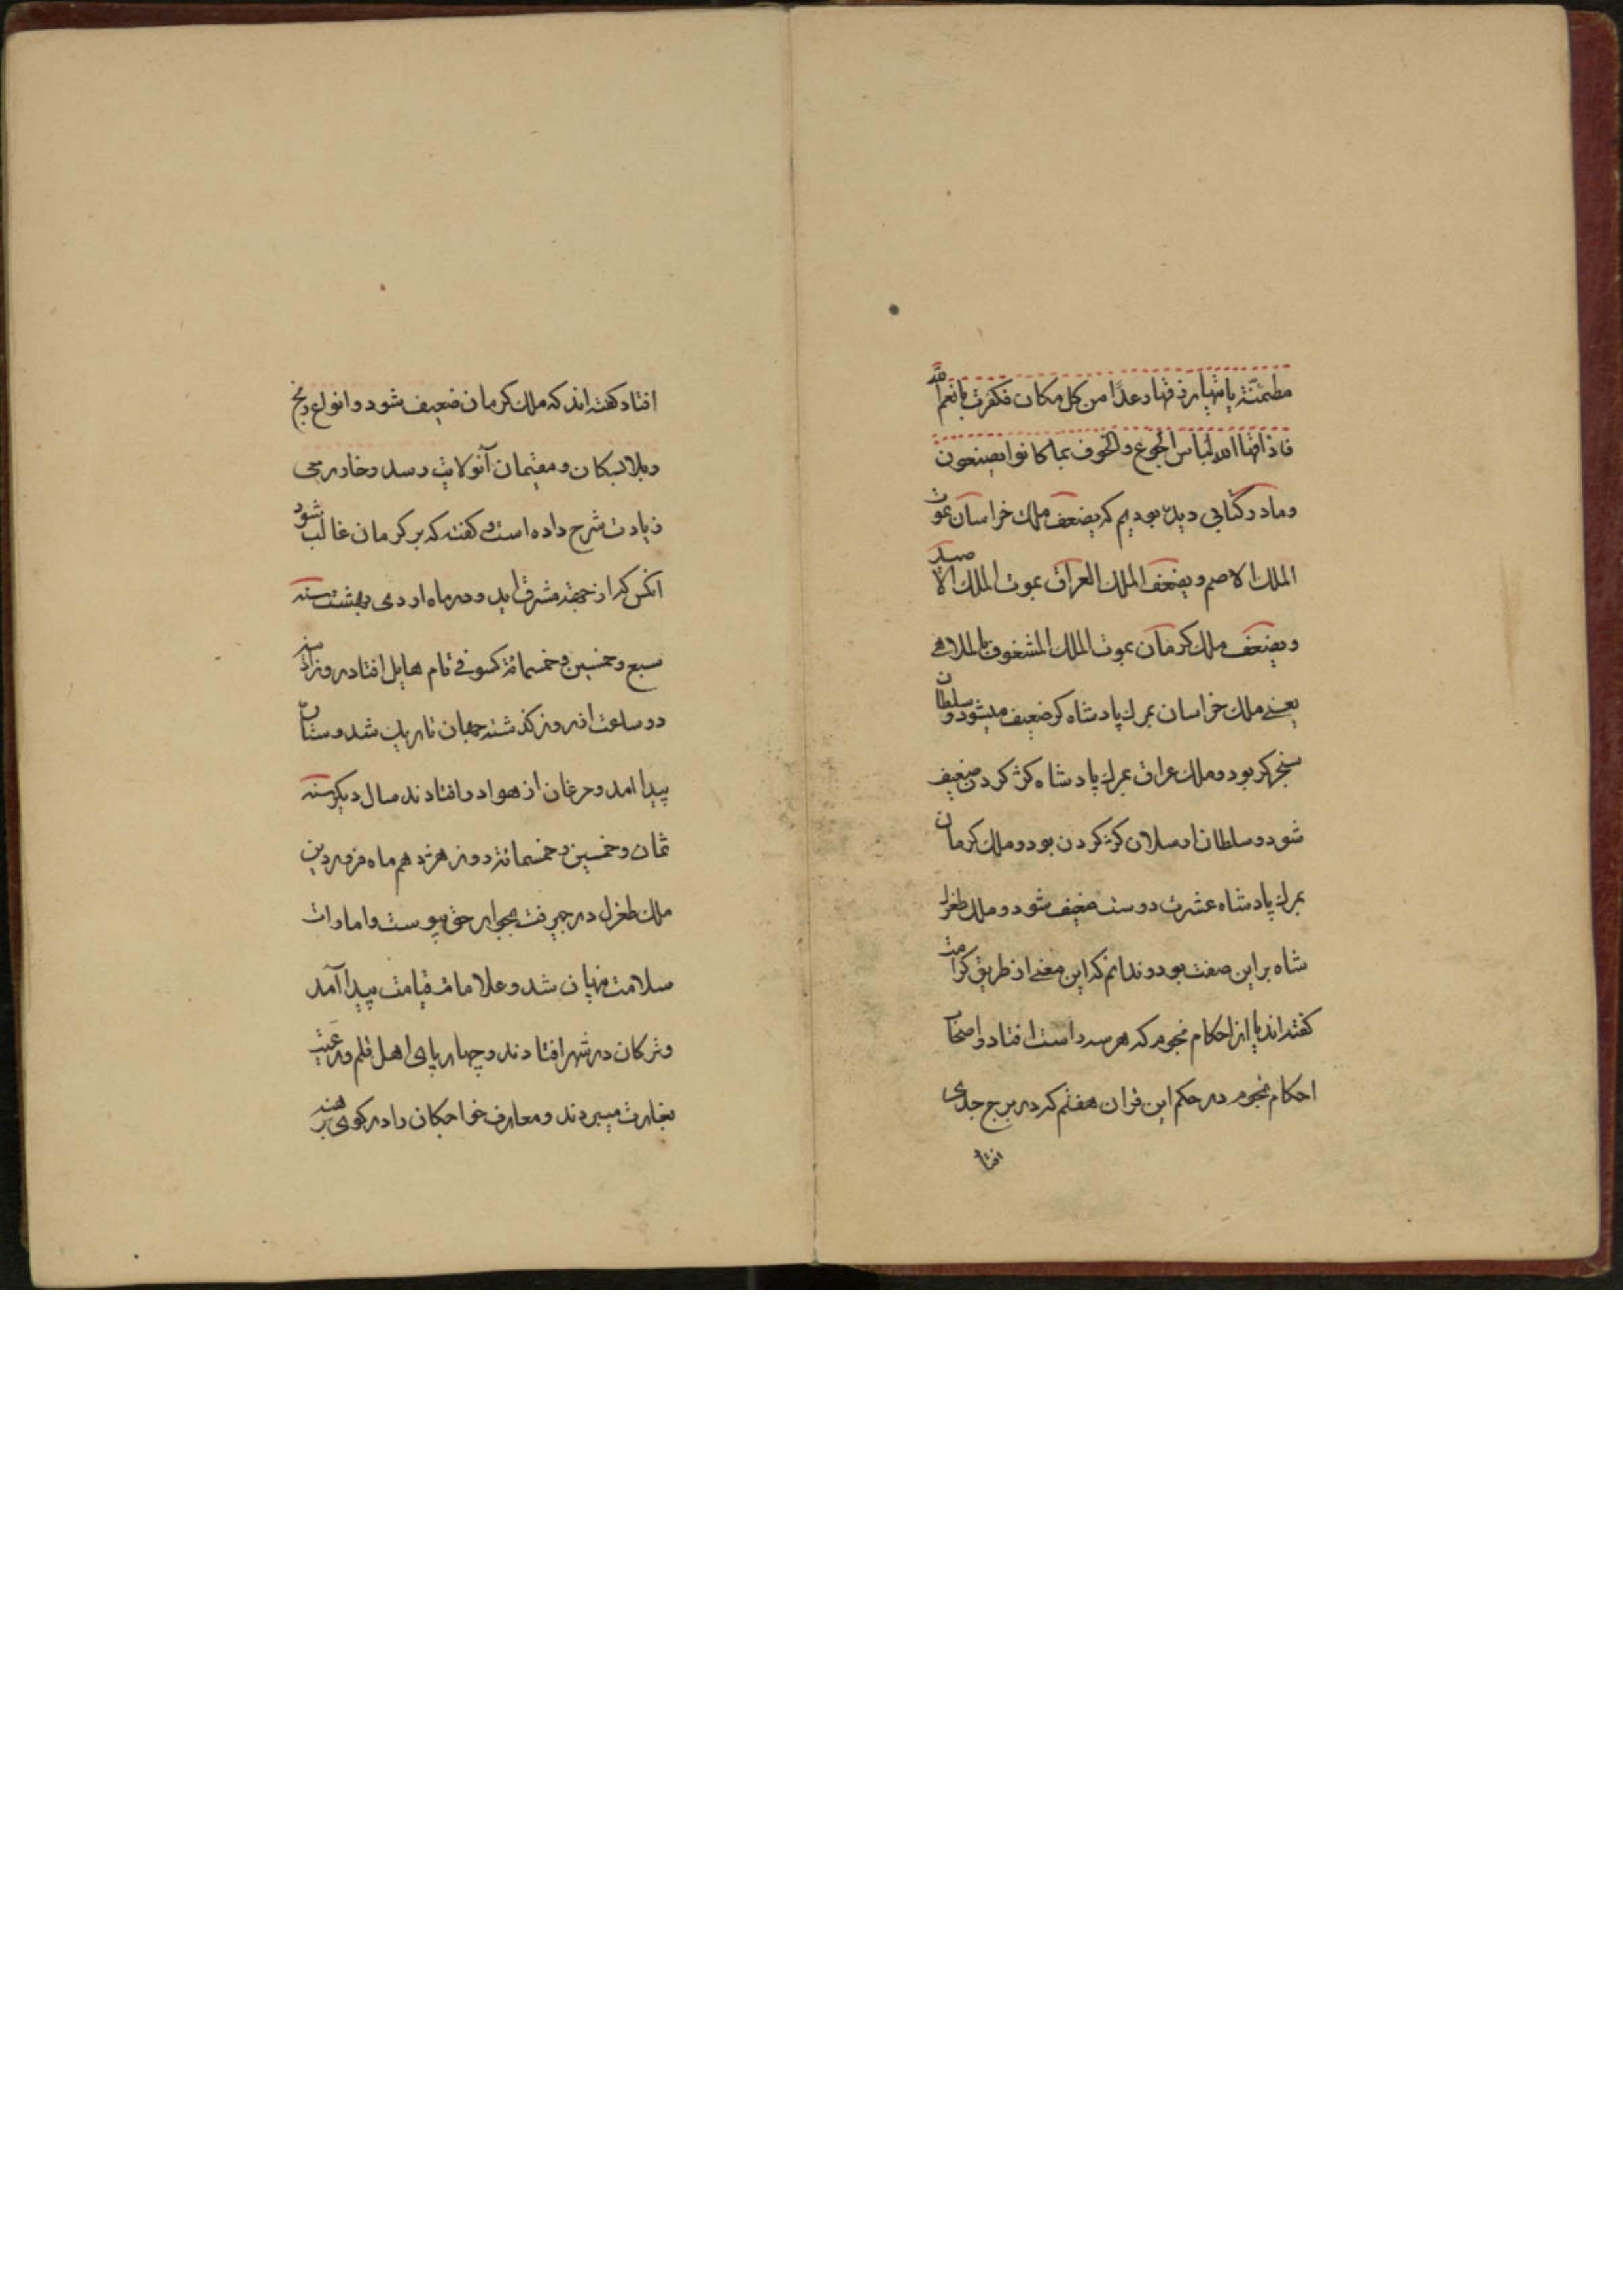 مطمئنّة یاتیها رزقها رغدًا من کل مکان فکفرت بانعم الله
فاذاقها الله لباس الجوع والخوف بما کانوا یصنعون
وما در کتابی دیده بودیم که یضعف ملک خراسان بموت
الملک الاصم ویضعف الملک العراق بموت الملک الاصید
ویضعف ملک کرمان بموت الملک المشغوف بالملاهی
یعنی ملک خراسان بمرک پادشاه کر ضعیف میشود و سلطان
سنجر کر بود و ملک عراق بمرک پادشاه کژ کردن ضعیف
شود و سلطان ارسلان کژ کردن بود و ملک کرمان
بمرک پادشاه عشرت دوست ضعیف شود و ملک طغرل
شاه براین صفت بود و ندانم که این معنی از طریق کرامت
کفته‌اند یا از احکام نجوم که هر سه راست افتاد و اصحاب
احکام نجوم در حکم این قران هفتم که در برج جدی
افتاد
افتاد کفته‌اند که ملک کرمان ضعیف شود و انواع رنج
وبلا بسکان و مقیمان آنولایت رسد و خاور می
زیادت شرح داده است و کفته که بر کرمان غالب شود
انکس که از جهة مشرق اید و در ماه اردی بهشت سنه
سبع و خمسین و خمسمائة کسوفی تام هایل افتاد در روز
دو ساعت از روز کذشته جهان تاریک شد و ستارکان
پیدا امد و مرغان از هوا در افتادند سال دیکر سنه
ثمان و خمسین و خمسمائة روز هژدهم ماه فروردین
ملک طغرل در جیرفت بجوار حق پیوست و امارات
سلامت پنهان شد و علامات قیامت پیدا آمد
و ترکان در شهر افتادند و چهارپای اهل قلم و رعیت
بغارت میبردند و معارف خواجکان را در کوی برهنه